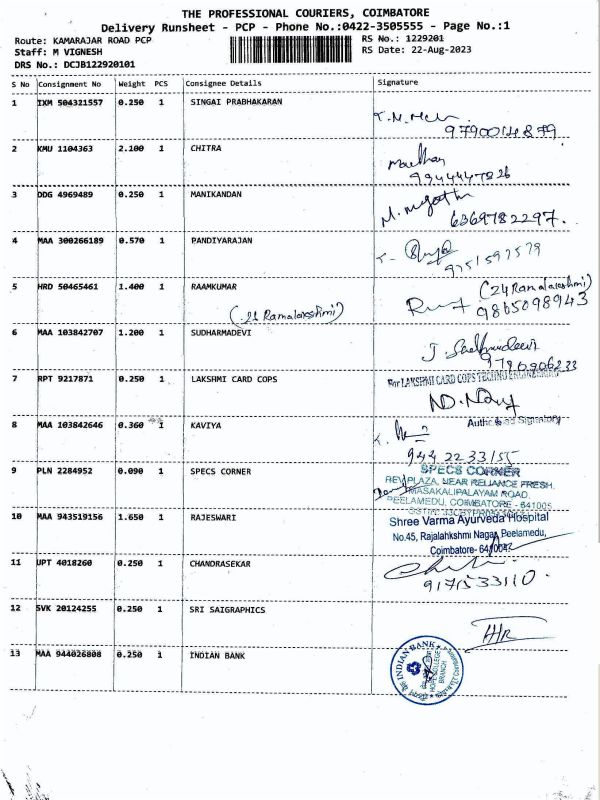 THE PROFESSIONAL COURIERS, COIMBATORE
Delivery Runsheet - PCP - Phone No.:0422-3505555 - Page No.:1
Route: KAMARAJAR ROAD PCP RS No.: 1229201
Staff: M VIGNESH RS Date: 22-Aug-2023
DRS No.: DCJB122920101
S No Consignment No Weight PCS Consignee Details Signature
1 IXM 504321557 0.250 1 SINGAI PRABHAKARAN
9790014879
2 KMU 1104363 2.100 1 CHITRA
Madhan
9944447826
3 DDG 4969489 0.250 1 MANIKANDAN
6369782297.
4 MAA 300266189 0.570 1 PANDIYARAJAN
9751597579
5 HRD 50465461 1.400 1 RAAMKUMAR
(24 Ramalakshmi)
(24 Ramalakshmi)
9865098943
6 MAA 103842707 1.200 1 SUDHARMADEVI
9790906233
7 RPT 9217871 0.250 1 LAKSHMI CARD COPS
For LAKSHMI CARD COPS TECHNO ENGINEERING
Authorised Signatory
8 MAA 103842646 0.360 1 KAVIYA
9442233155
9 PLN 2284952 0.090 1 SPECS CORNER
SPECS CORNER
REVI PLAZA, NEAR RELIANCE FRESH,
MASAKALIPALAYAM ROAD,
PEELAMEDU, COIMBATORE - 641005
10 MAA 943519156 1.650 1 RAJESWARI
Shree Varma Ayurveda Hospital
No.45, Rajalahkshmi Nagar, Peelamedu,
Coimbatore- 641004.
11 UPT 4018260 0.250 1 CHANDRASEKAR
9171533110.
12 SVK 20124255 0.250 1 SRI SAIGRAPHICS
13 MAA 944026808 0.250 1 INDIAN BANK
INDIAN BANK
HOPE COLLEGE
BRANCH